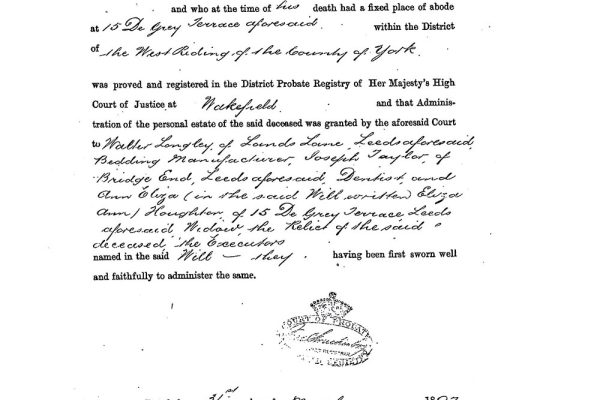 and who at the time of his death had a fixed place of abode
at 15 De Grey Terrace aforesaid within the District
of the West Riding of the County of York
was proved and registered in the District Probate Registry of Her Majesty's High
Court of Justice at Wakefield and that Adminis-
tration of the personal estate of the said deceased was granted by the aforesaid Court
to Walter Longley, of Lands Lane, Leeds aforesaid,
Bedding Manufacturer, Joseph Taylor, of
Bridge End, Leeds aforesaid, Dentist, and
Ann Eliza (in the said Will written Eliza
Ann) Houghton, of 15 De Grey Terrace, Leeds
aforesaid, Widow, the Relict of the said
deceased the Executors
named in the said Will — they having been first sworn well
and faithfully to administer the same.
COURT OF PROBATE
31st